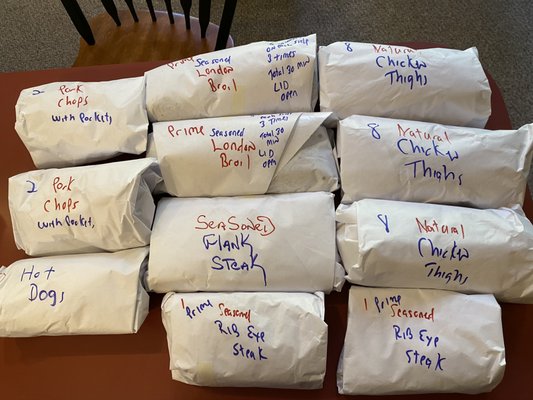 2 Pork
Chops
with Pockets
Prime Seasoned
London
Broil
3 times
Total 30 min
LID
open
8 Natural
Chicken
Thighs
Prime Seasoned
London
Broil
3 times
Total 30
min
LID
open
8 Natural
Chicken
Thighs
2 Pork
Chops
with Pockets
Seasoned
Flank
Steak
8 Natural
Chicken
Thighs
Hot
Dogs
1 Prime Seasoned
Rib Eye
Steak
1 Prime
Seasoned
Rib Eye
Steak